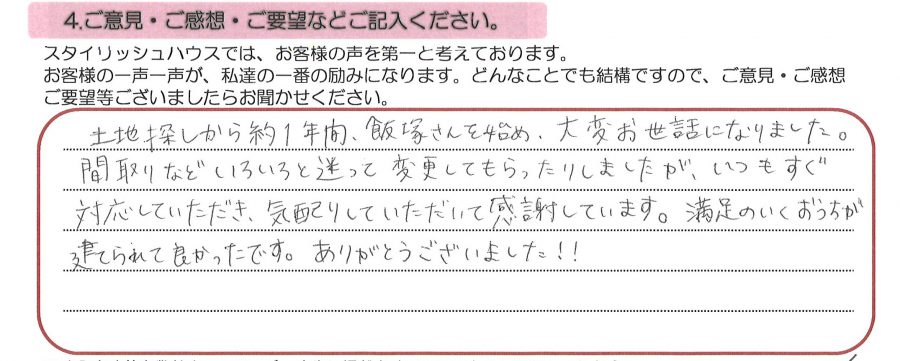 4.ご意見・ご感想・ご要望などご記入ください。
スタイリッシュハウスでは、お客様の声を第一と考えております。
お客様の一声一声が、私達の一番の励みになります。どんなことでも結構ですので、ご意見・ご感想
ご要望等ございましたらお聞かせください。
土地探しから約1年間、飯塚さんを始め、大変お世話になりました。
間取りなどいろいろと迷って変更してもらったりしましたが、いつもすぐ
対応していただき、気配りしていただいて感謝しています。満足のいくおうちが
建てられて良かったです。ありがとうございました!!